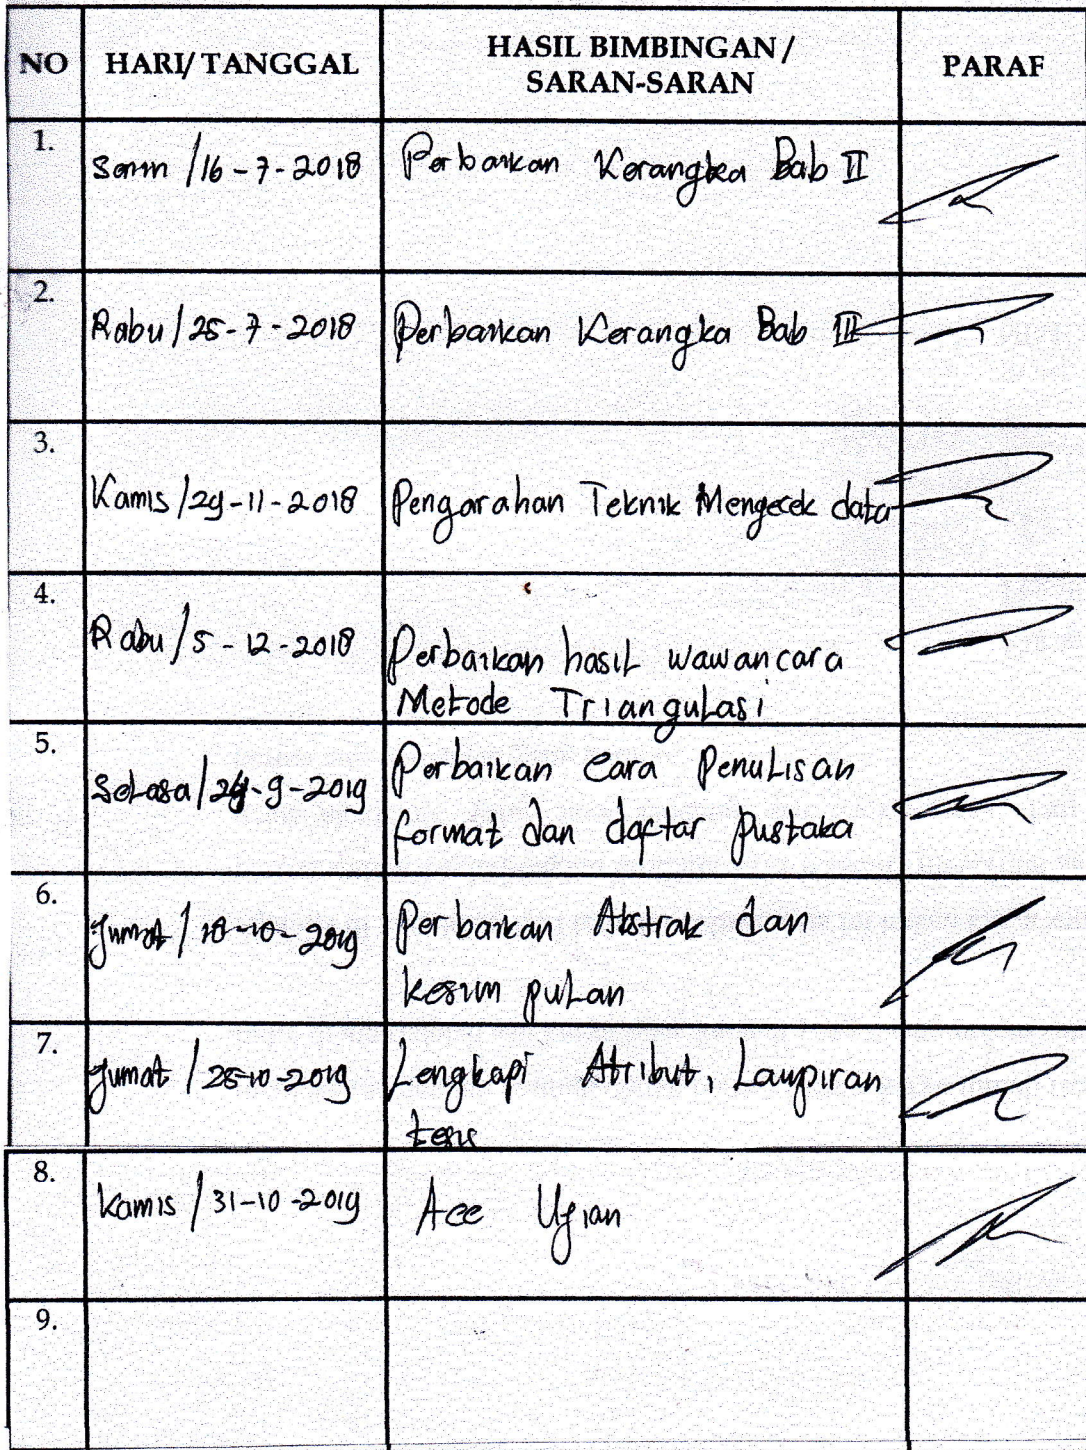 NO HARI/ TANGGAL HASIL BIMBINGAN / SARAN-SARAN PARAF
1. Senin / 16 - 7 - 2018 Perbaikan Kerangka Bab II
2. Rabu / 25 - 7 - 2018 Perbaikan Kerangka Bab III
3. Kamis / 29 - 11 - 2018 Pengarahan Teknik Mengecek data
4. Rabu / 5 - 12 - 2018 Perbaikan hasil wawancara
Metode Triangulasi
5. Selasa / 24 - 9 - 2019 Perbaikan Cara Penulisan
format dan daftar pustaka
6. Jumat / 18 - 10 - 2019 Perbaikan Abstrak dan
kesimpulan
7. Jumat / 25-10-2019 Lengkapi Atribut, Lampiran
tesis
8. Kamis / 31-10-2019 Acc Ujian
9.